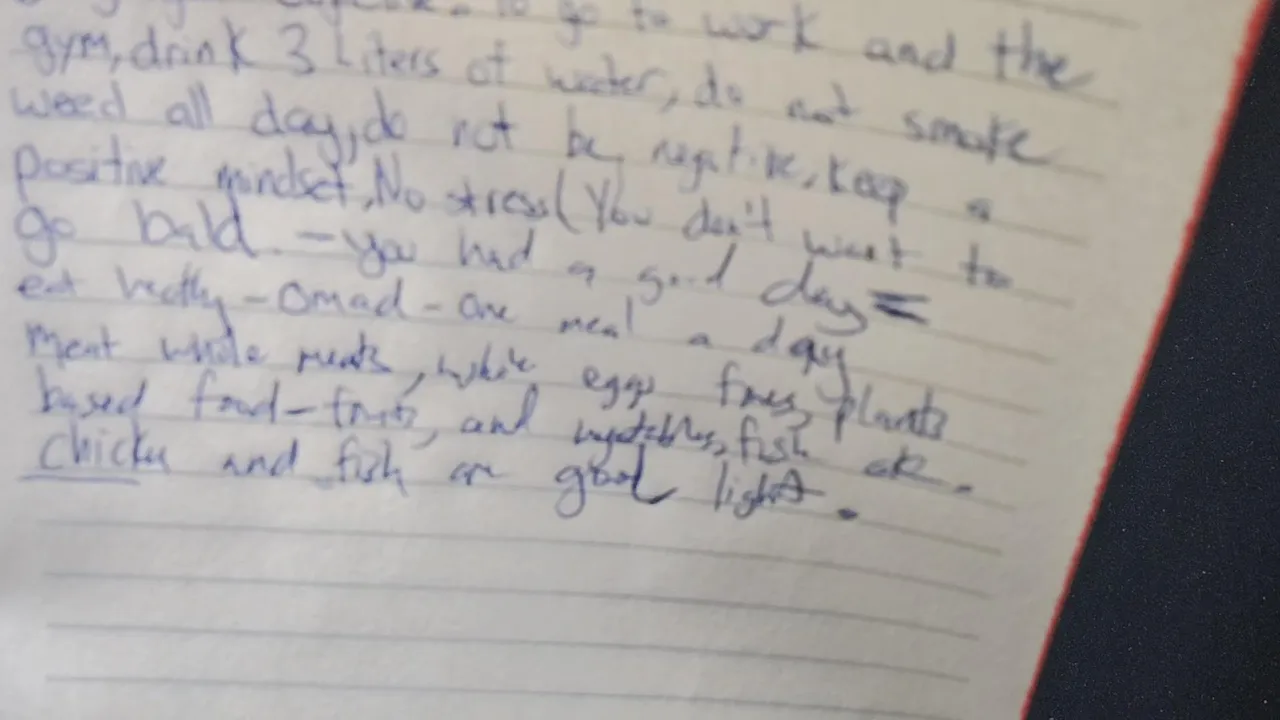 to go to work and the
gym, drink 3 Liters of water, do not smoke
weed all day, do not be negative, keep a
positive mindset, No stress (You don't want to
go bald - you had a good day =
eat - omad - one meal a day
meat whole meats, whole eggs, plants
based food - fruits, and vegetables, fish ok.
and fish are good light.